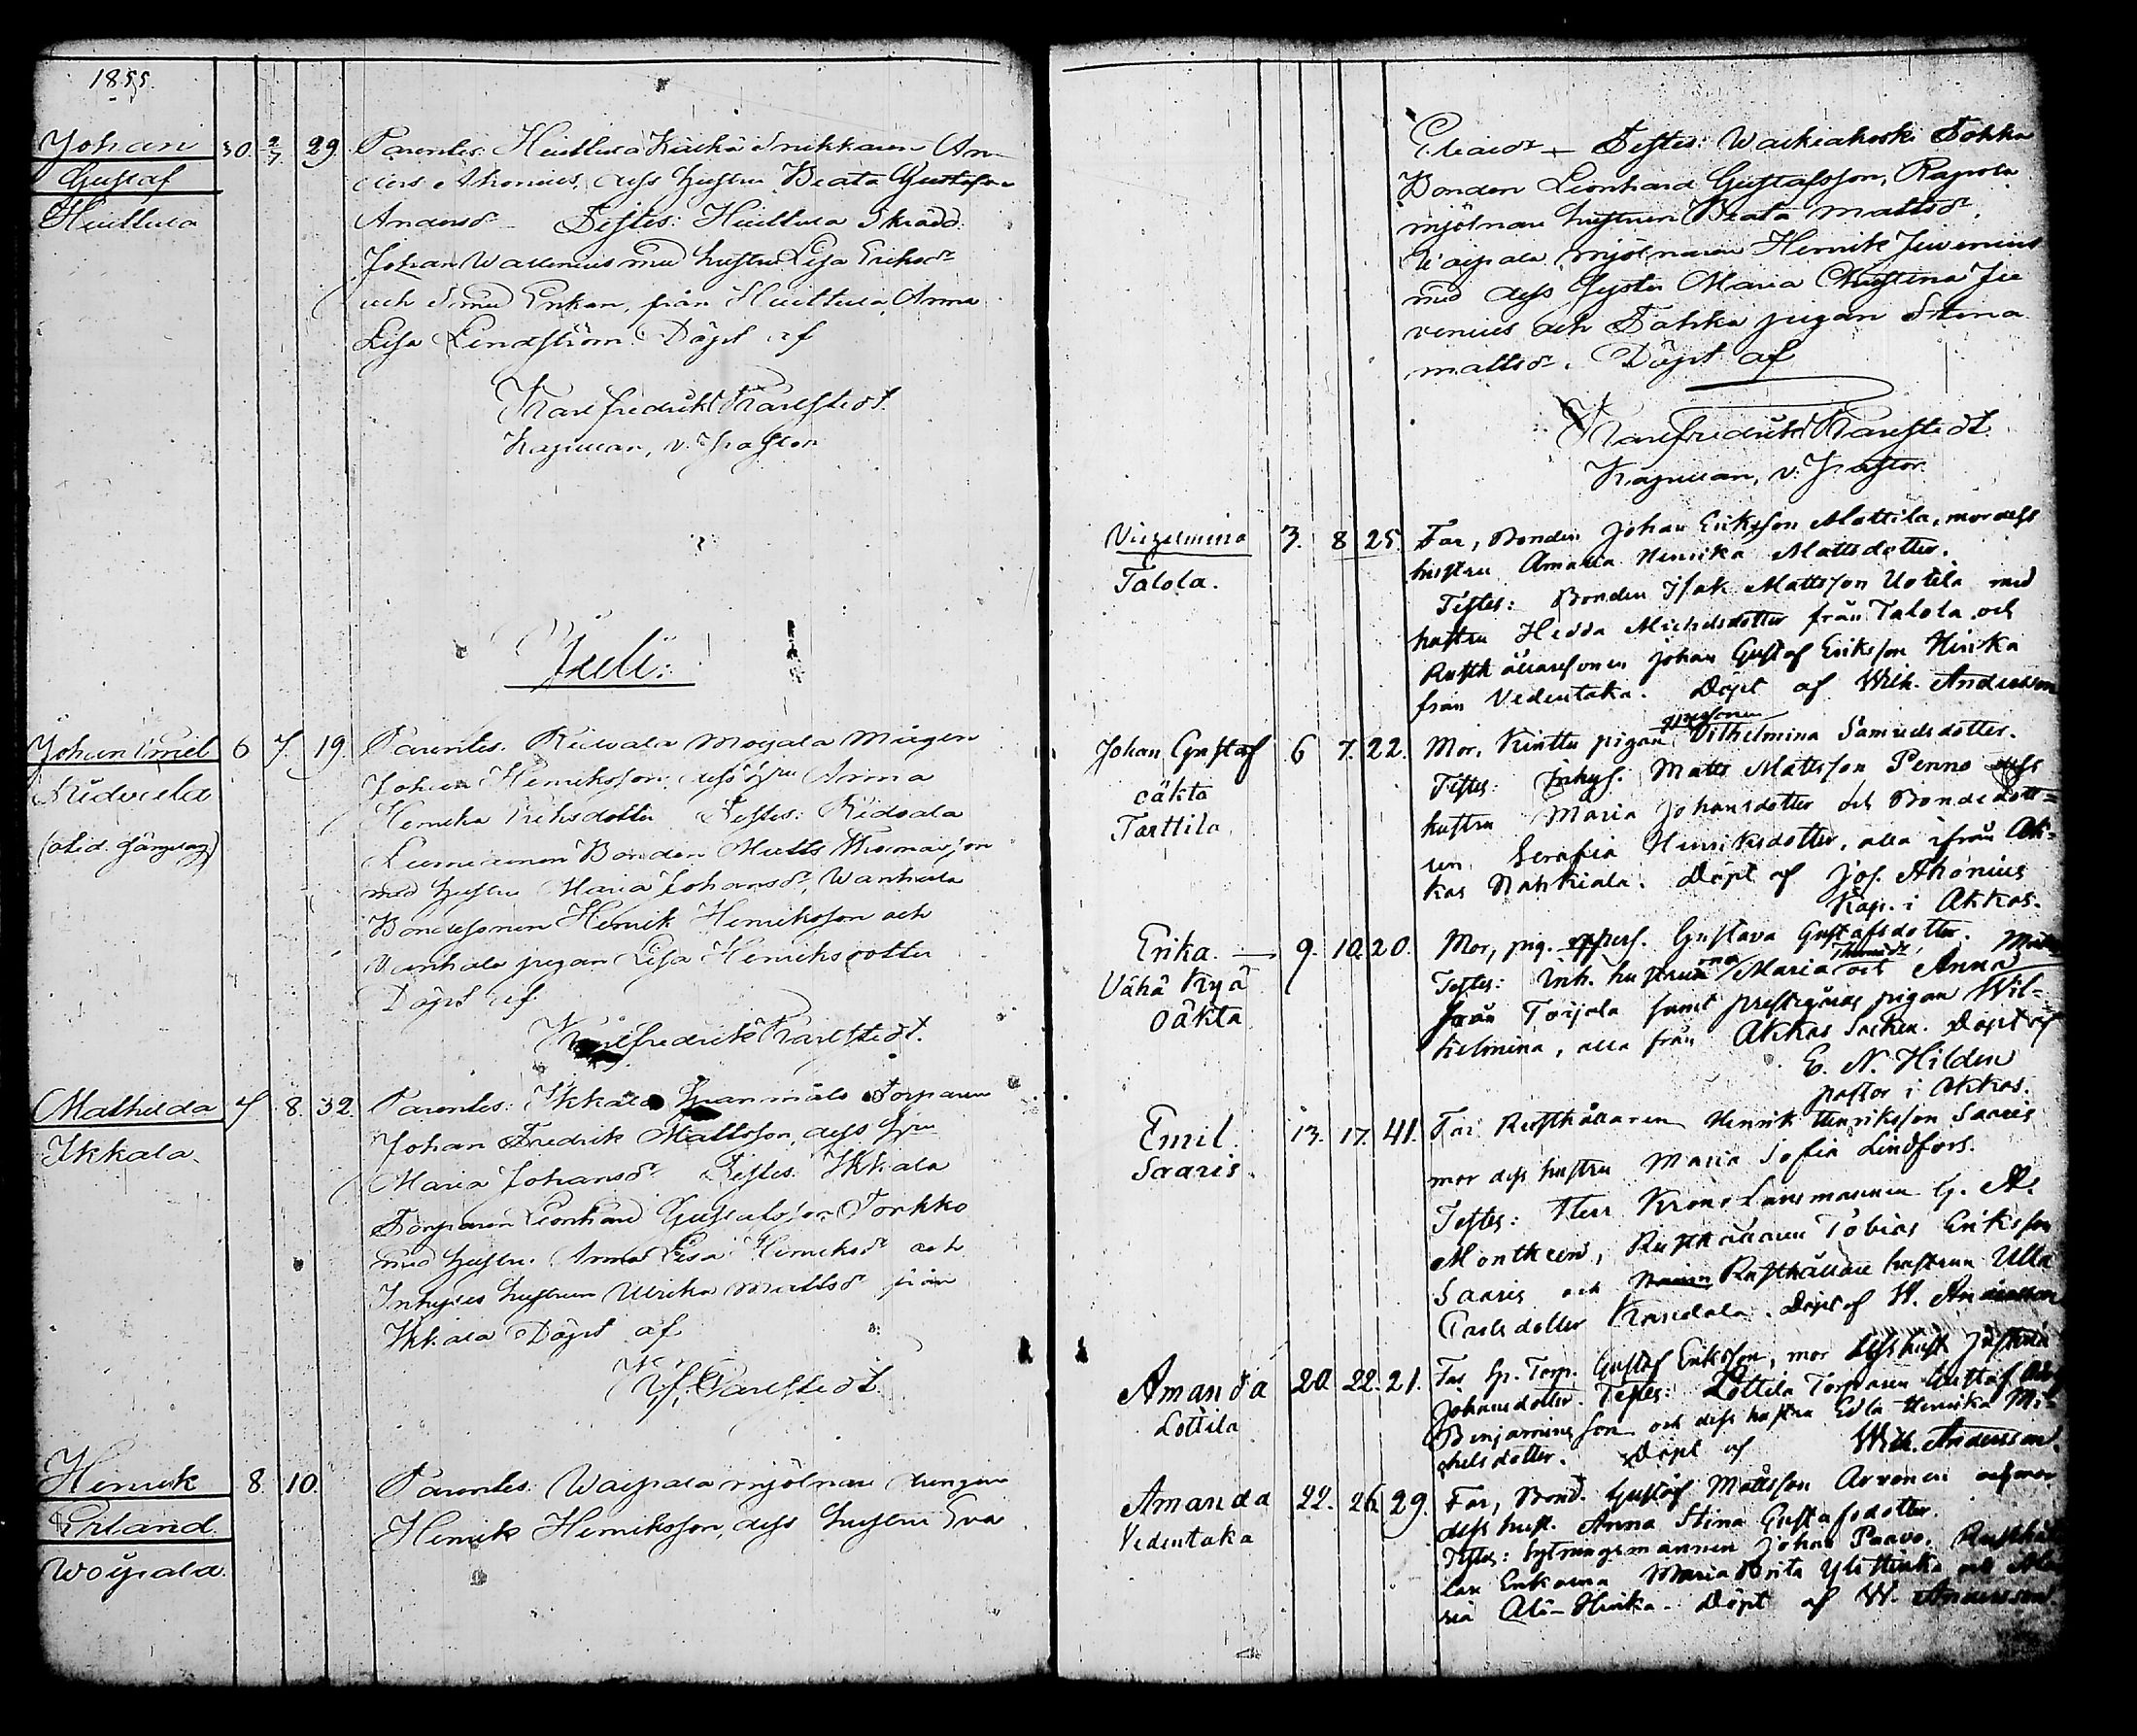 1855.
Johan 30. 2/7. 29. Parentes: Huittula Snikkaren An-
Gustaf ders Ahonius, dess hustru Beata Gustafva
Huittula Andersdr Testes: Huittula Skrädd.
Johan Wallenius med hustru Lisa Eriksdr
och Enkan från Huittula, Anna
Lisa Lindström. Döpt af
Karl Fredrik Karlstedt.
Kapellan, v. Pastor
Juli:
Johan Emil 6 7. 19. Parentes: Ridvala
Ridvala Johan Henriksson, dess hru Anna
Henrika Eriksdotter Testes: Ridvala
Bonden Matts Thomasson
med hustru Maria Johansdr, Wanhala
Bondesonen Henrik Henriksson och
Wanhala pigan Lisa Henriksdotter
Döpt af
Karl Fredrik Karlstedt.
Mathilda 7 8. 32. Parentes: Ikkala Torparen
Ikkala. Johan Fredrik Mattsson, dess hru
Maria Johansdr Testes: Ikkala
Torparen Leonhard Gustafsson Torkko
med hustru Anna Lisa Henriksdr och
Inhyses hustrun Ulrika Mattsdr från
Ikkala Döpt af
K. F. Karlstedt.
Henrik 8. 10. Parentes: Woipala mjölnare drengen
Erland. Henrik Henriksson, dess hustru Eva
Woipala.
Eliaedr Testes: Waikiakoski Tokka
Bonden Leonhard Gustafsson, Rapola
mjölnare hustrun Beata Mattsdr,
Woipala mjölnaren Henrik Juvenius
med dess Syster Maria Christina Ju
venius och Tokka pigan Stina
Mattsdr. Döpt af
Karl Fredrik Karlstedt.
Kapellan, v. Pastor.
Vilhelmina 3. 8 25. Far, Bonden Johan Eriksson Mattila, mor dess
Talola. hustru Amalia Henrika Mattsdotter.
Testes: Bonden Isak Mattsson Uotila med
hustru Hedda Michelsdotter från Talola och
Rusthållaresonen Johan Gustaf Eriksson Hinka
från Vedentaka. Döpt af Wilh. Andersson
Johan Gustaf 6 7. 22. Mor, Kinttu pigan qvpersonen Vilhelmina Samuelsdotter.
oäkta Testes: Inhys. Matts Mattsson Penno dess
Tarttila hustru Maria Johansdotter och Bondedott=
ren Serafia Henriksdotter, alla ifrån Ak=
kas Nahkiala. Döpt af Jos. Ahonius
Kap. i Akkas.
Erika. 9. 10. 20. Mor, pig. Gustava Gustafsdotter.
Vähä Kyä Testes: Inh. hustruna Maria Thomsdr och Anna
oäkta från Toijala samt prestgårds pigan Wil=
helmina, alla från Akkas Socken. Döpt af
E. N. Hilden
pastor i Akkas.
Emil. 13. 17. 41. Far Rusthållaren Henrik Henriksson Saaris
Saaris. mor dess hustru Maria Sofia Lindfors.
Testes: Herr Krono Länsmannen G. A.
Montheen, Rusthållaren Tobias Eriksson
Saaris och Rusthållare hustrun Ulla
Carlsdotter. Döpt af W. Andersson
Amanda 20. 22. 21. Far Sp. Torp. Gustaf Eriksson, mor dess hust Justina
Lottila Johansdotter. Testes: Lottila Torparen Gustaf
Benjaminsson och dess hustru Edla Henrika Mi=
chelsdotter. Döpt af Wilh. Andersson.
Amanda 22. 26. 29. Far, Bond. Gustaf Mattsson Arvonen och mor
Vedentaka dess hust. Anna Stina Gustafsdotter.
Testes: Sytningsmannen Johan Paavo. Rusthål
lare Enkorna Maria Brita Yli Hinka och Ma
ria Ali-Hinka. Döpt af W. Andersson